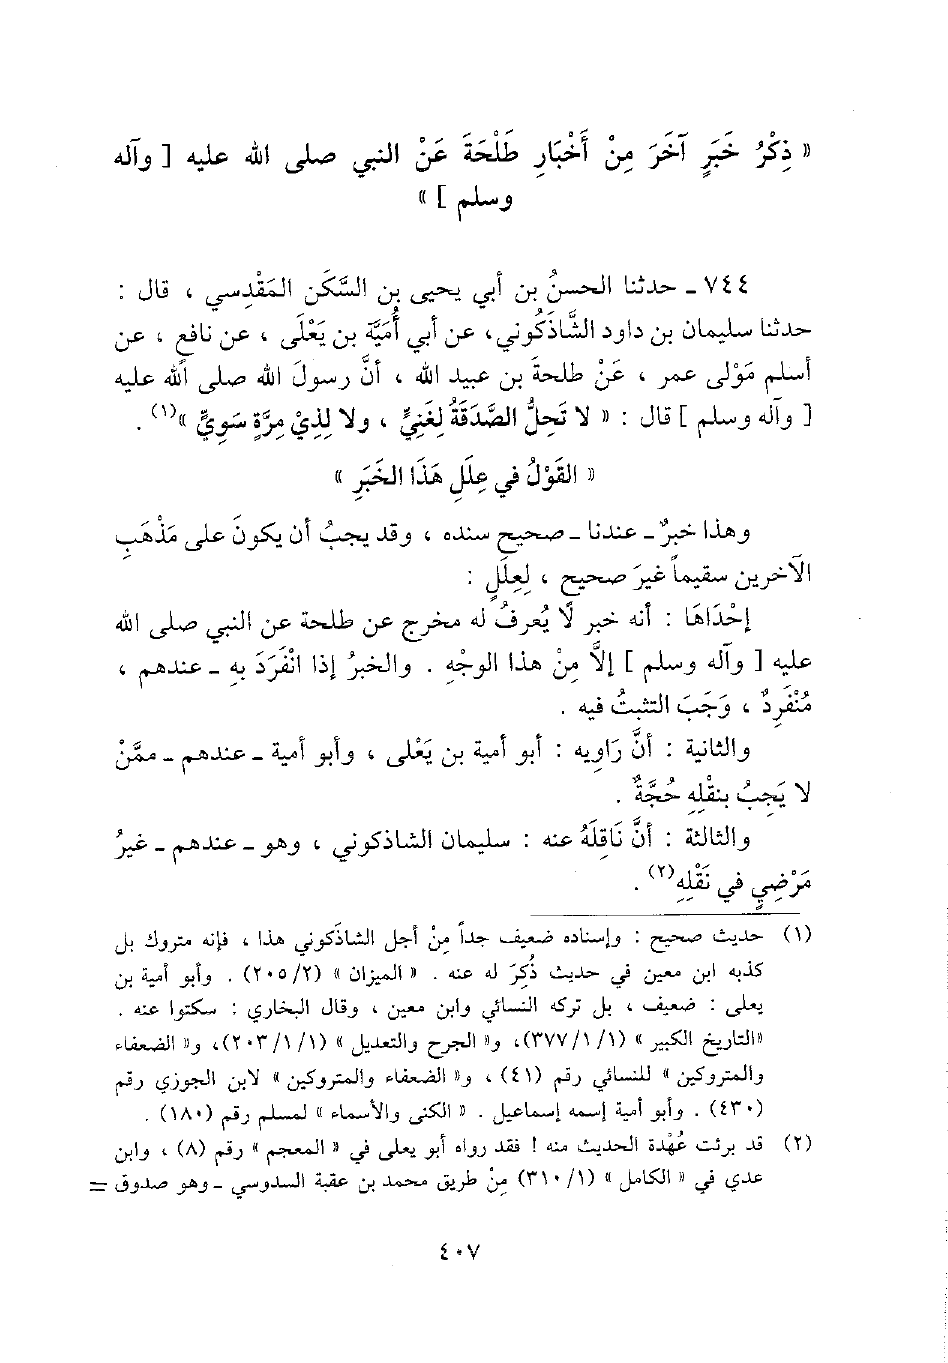 « ذِكْرُ خَبَرٍ آخَرَ مِنْ أَخْبَارِ طَلْحَةَ عَنْ النبي صلى الله عليه [ وآله
وسلم ] »
٧٤٤ ـ حدثنا الحسنُ بن أبي يحيى بن السَّكَن المَقْدِسي ، قال :
حدثنا سليمان بن داود الشَّاذَكُوني، عن أبي أُمَيَّة بن يَعْلَى ، عن نافع ، عن
أسلم مَوْلى عمر ، عَنْ طلحةَ بن عبيد الله ، أنَّ رسولَ الله صلى الله عليه
[ وآله وسلم ] قال : « لا تَحِلُّ الصَّدَقَةُ لِغَنِيٍّ ، ولا لِذِيْ مِرَّةٍ سَوِيٍّ »(١) .
« القَوْلُ في عِلَلِ هَذَا الخَبَرِ »
وهذا خبرٌ ـ عندنا ـ صحيح سنده ، وقد يجبُ أن يكونَ على مَذْهَبِ
الآخرين سقيماً غيرَ صحيح ، لِعِلَلٍ :
إحْدَاهَا : أنه خبر لا يُعرفُ له مخرج عن طلحة عن النبي صلى الله
عليه [ وآله وسلم ] إلاَّ مِنْ هذا الوجْهِ . والخبرُ إذا انْفَرَدَ بِهِ ـ عندهم ،
مُنْفَرِدٌ ، وَجَبَ التثبتُ فيه .
والثانية : أنَّ رَاوِيه : أبو أمية بن يَعْلى ، وأبو أمية ـ عندهم ـ ممَّنْ
لا يَجِبُ بنقْلِهِ حُجَّةٌ .
والثالثة : أنَّ نَاقِلَهُ عنه : سليمان الشاذكوني ، وهو ـ عندهم ـ غيرُ
مَرْضِيٍ في نَقْلِهِ(٢) .
(١) حديث صحيح : وإسناده ضعيف جداً مِنْ أجل الشاذَكوني هذا ، فإنه متروك بل
كذبه ابن معين في حديث ذُكِرَ له عنه . « الميزان » (٢٠٥/٢) . وأبو أمية بن
يعلى : ضعيف ، بل تركه النسائي وابن معين ، وقال البخاري : سكتوا عنه .
«التاريخ الكبير » (٣٧٧/١/١)، و« الجرح والتعديل » (٢٠٣/١/١)، و« الضعفاء
والمتروكين » للنسائي رقم (٤١) ، و« الضعفاء والمتروكين » لابن الجوزي رقم
(٤٣٠) . وأبو أمية إسمه إسماعيل . « الكنى والأسماء » لمسلم رقم (١٨٠) .
(٢) قد برئت عُهْدة الحديث منه ! فقد رواه أبو يعلى في « المعجم » رقم (٨) ، وابن
عدي في « الكامل » (٣١٠/١) مِنْ طريق محمد بن عقبة السدوسي ـ وهو صدوق =
٤٠٧